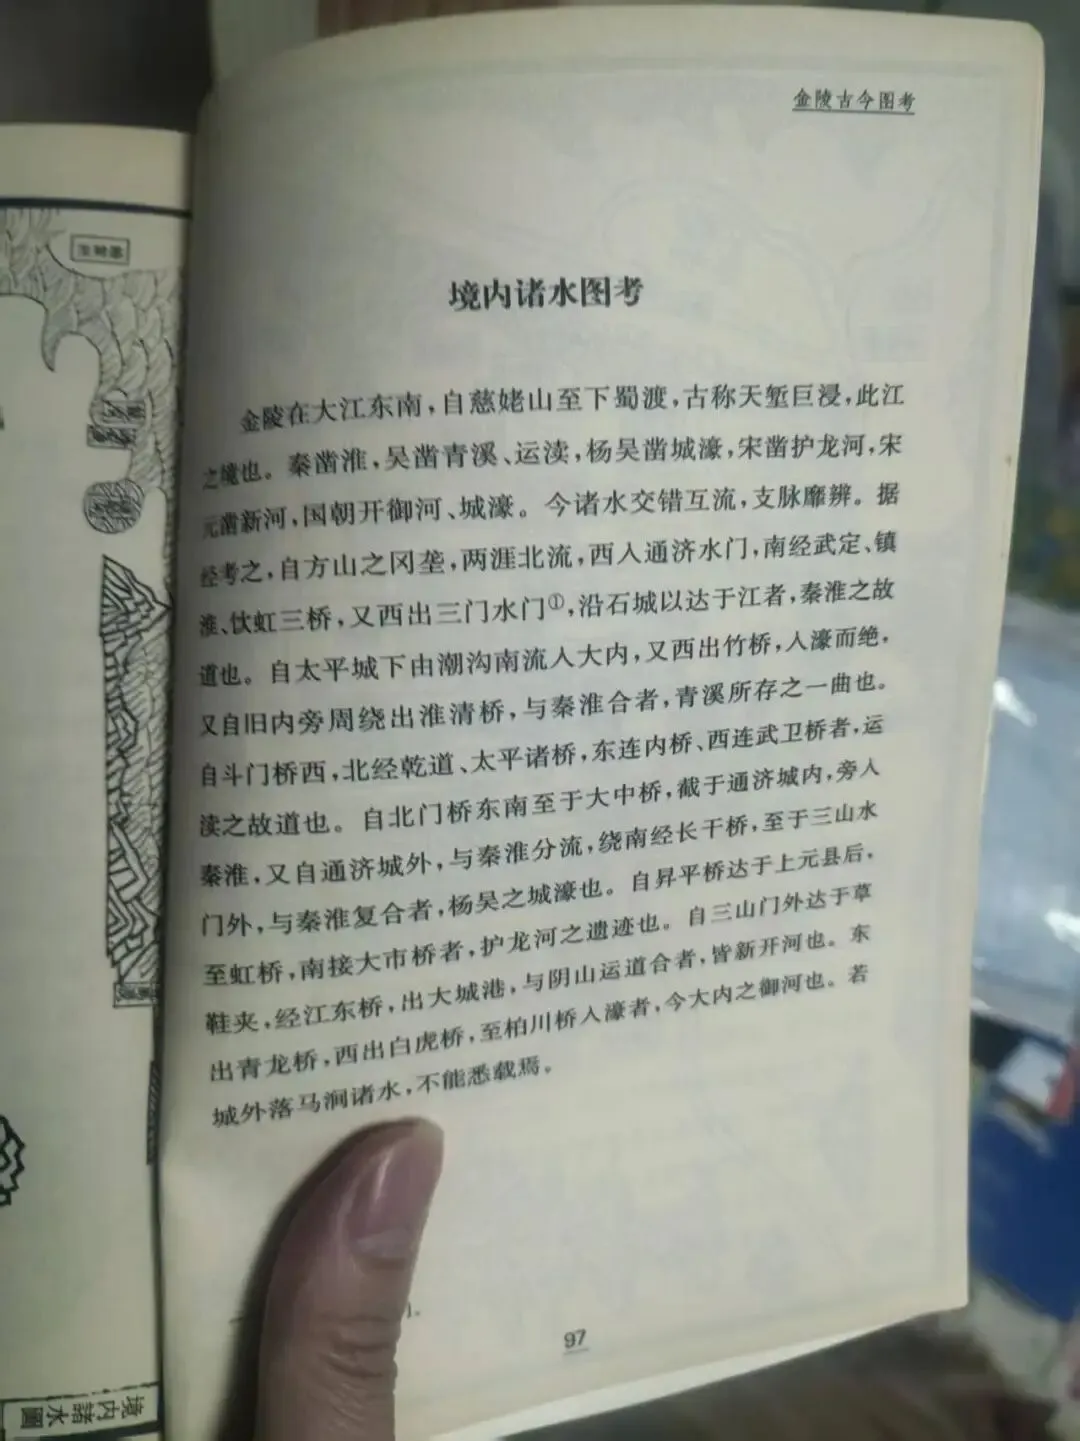 金陵古今图考
境内诸水图考
金陵在大江东南，自慈姥山至下蜀渡，古称天堑巨浸，此江
之境也。秦凿淮，吴凿青溪、运渎，杨吴凿城濠，宋凿护龙河，宋
元凿新河，国朝开御河、城濠。今诸水交错互流，支脉靡辨。据
经考之，自方山之冈垄，两涯北流，西入通济水门，南经武定、镇
淮、饮虹三桥，又西出三门水门①，沿石城以达于江者，秦淮之故
道也。自太平城下由潮沟南流入大内，又西出竹桥，入濠而绝，
又自旧内旁周绕出淮清桥，与秦淮合者，青溪所存之一曲也。
自斗门桥西，北经乾道、太平诸桥，东连内桥、西连武卫桥者，运
渎之故道也。自北门桥东南至于大中桥，截于通济城内，旁入
秦淮，又自通济城外，与秦淮分流，绕南经长干桥，至于三山水
门外，与秦淮复合者，杨吴之城濠也。自昇平桥达于上元县后，
至虹桥，南接大市桥者，护龙河之遗迹也。自三山门外达于草
鞋夹，经江东桥，出大城港，与阴山运道合者，皆新开河也。东
出青龙桥，西出白虎桥，至柏川桥入濠者，今大内之御河也。若
城外落马涧诸水，不能悉载焉。
97
境内諸水圖